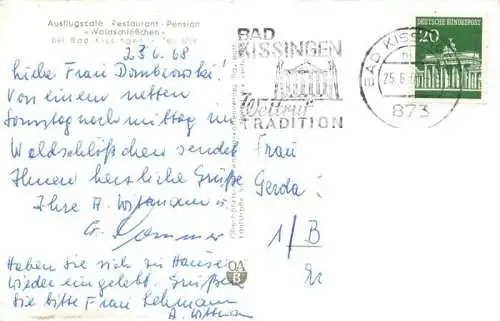 Ausflugscafé Restaurant-Pension
»Waldschlößchen«
bei Bad Kissingen - Tel.
23.6.68
Liebe Frau Dombrowski!
Von einem netten
Sonntagnachmittag im
Waldschlößchen sendet
Ihnen herzliche Grüße
Ihre A. Wittmann u.
G. Sommer
Haben Sie sich zu Hause
wieder eingelebt. Grüßen
Sie bitte Frau Lehmann
A. Wittman
BAD
KISSINGEN
Weltruf
TRADITION
BAD KISS
25.6.
873
DEUTSCHE BUNDESPOST
20
Frau
Gerda
1/B
OA
B